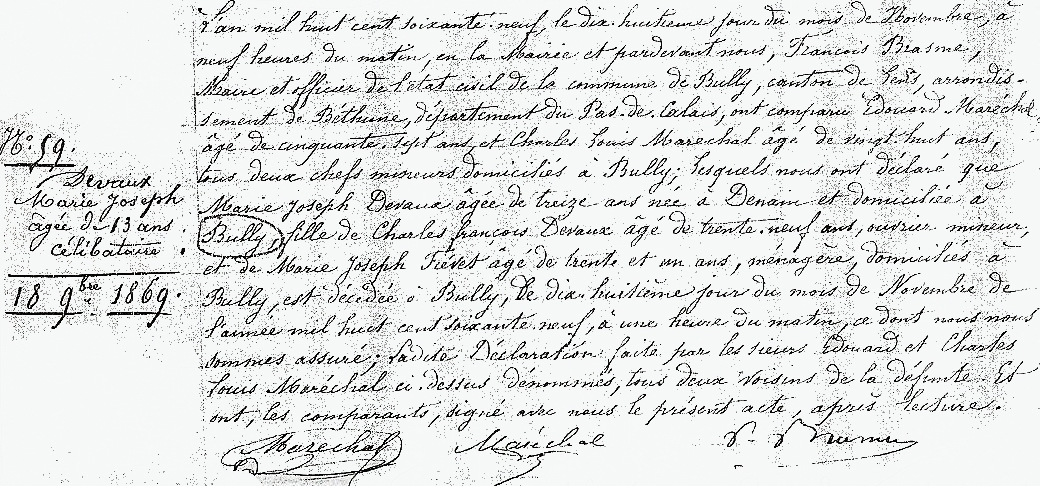 L'an mil huit cent soixante-neuf, le dix-huitième jour du mois de Novembre, à
neuf heures du matin, en la Mairie et pardevant nous, François Brasme,
Maire et officier de l'état civil de la commune de Bully, canton de Lens, arrondis-
sement de Béthune, département du Pas-de-Calais, ont comparu Edouard Maréchal
âgé de cinquante-sept ans, et Charles Louis Maréchal âgé de vingt-huit ans,
tous deux chefs mineurs domiciliés à Bully; lesquels nous ont déclaré que
Marie Joseph Devaux âgée de treize ans née à Denain et domiciliée à
Bully, fille de Charles François Devaux âgé de trente-neuf ans, ouvrier mineur,
et de Marie Joseph Fiévet âgé de trente et un ans, ménagère, domiciliés à
Bully, est décédée à Bully, le dix-huitième jour du mois de Novembre de
l'année mil huit cent soixante-neuf, à une heure du matin, ce dont nous nous
sommes assuré; ladite Déclaration faite par les sieurs Edouard et Charles
Louis Maréchal ci-dessus dénommés, tous deux voisins de la défunte. Et
ont, les comparants, signé avec nous le présent acte, après lecture.
Maréchal Maréchal
N° 59.
Devaux
Marie Joseph
âgée de 13 ans
célibataire.
18 9bre 1869.